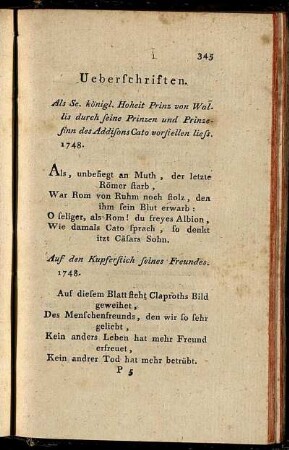 I. 345
Ueberſchriften.
Als Se. königl. Hoheit Prinz von Wal-
lis durch ſeine Prinzen und Prinze-
ſinn des Addiſons Cato vorſtellen lieſs.
1748.
Als, unbeſiegt an Muth, der letzte
Römer ſtarb,
War Rom von Ruhm noch ſtolz, den
ihm ſein Blut erwarb:
O ſeliger, als Rom! du freyes Albion,
Wie damals Cato ſprach, ſo denkt
itzt Cäſars Sohn.
Auf den Kupferſtich ſeines Freundes.
1748.
Auf dieſem Blatt ſteht Claproths Bild
geweihet,
Des Menſchenfreunds, den wir ſo ſehr
geliebt,
Kein anders Leben hat mehr Freund
erfreuet,
Kein andrer Tod hat mehr betrübt.
P 5